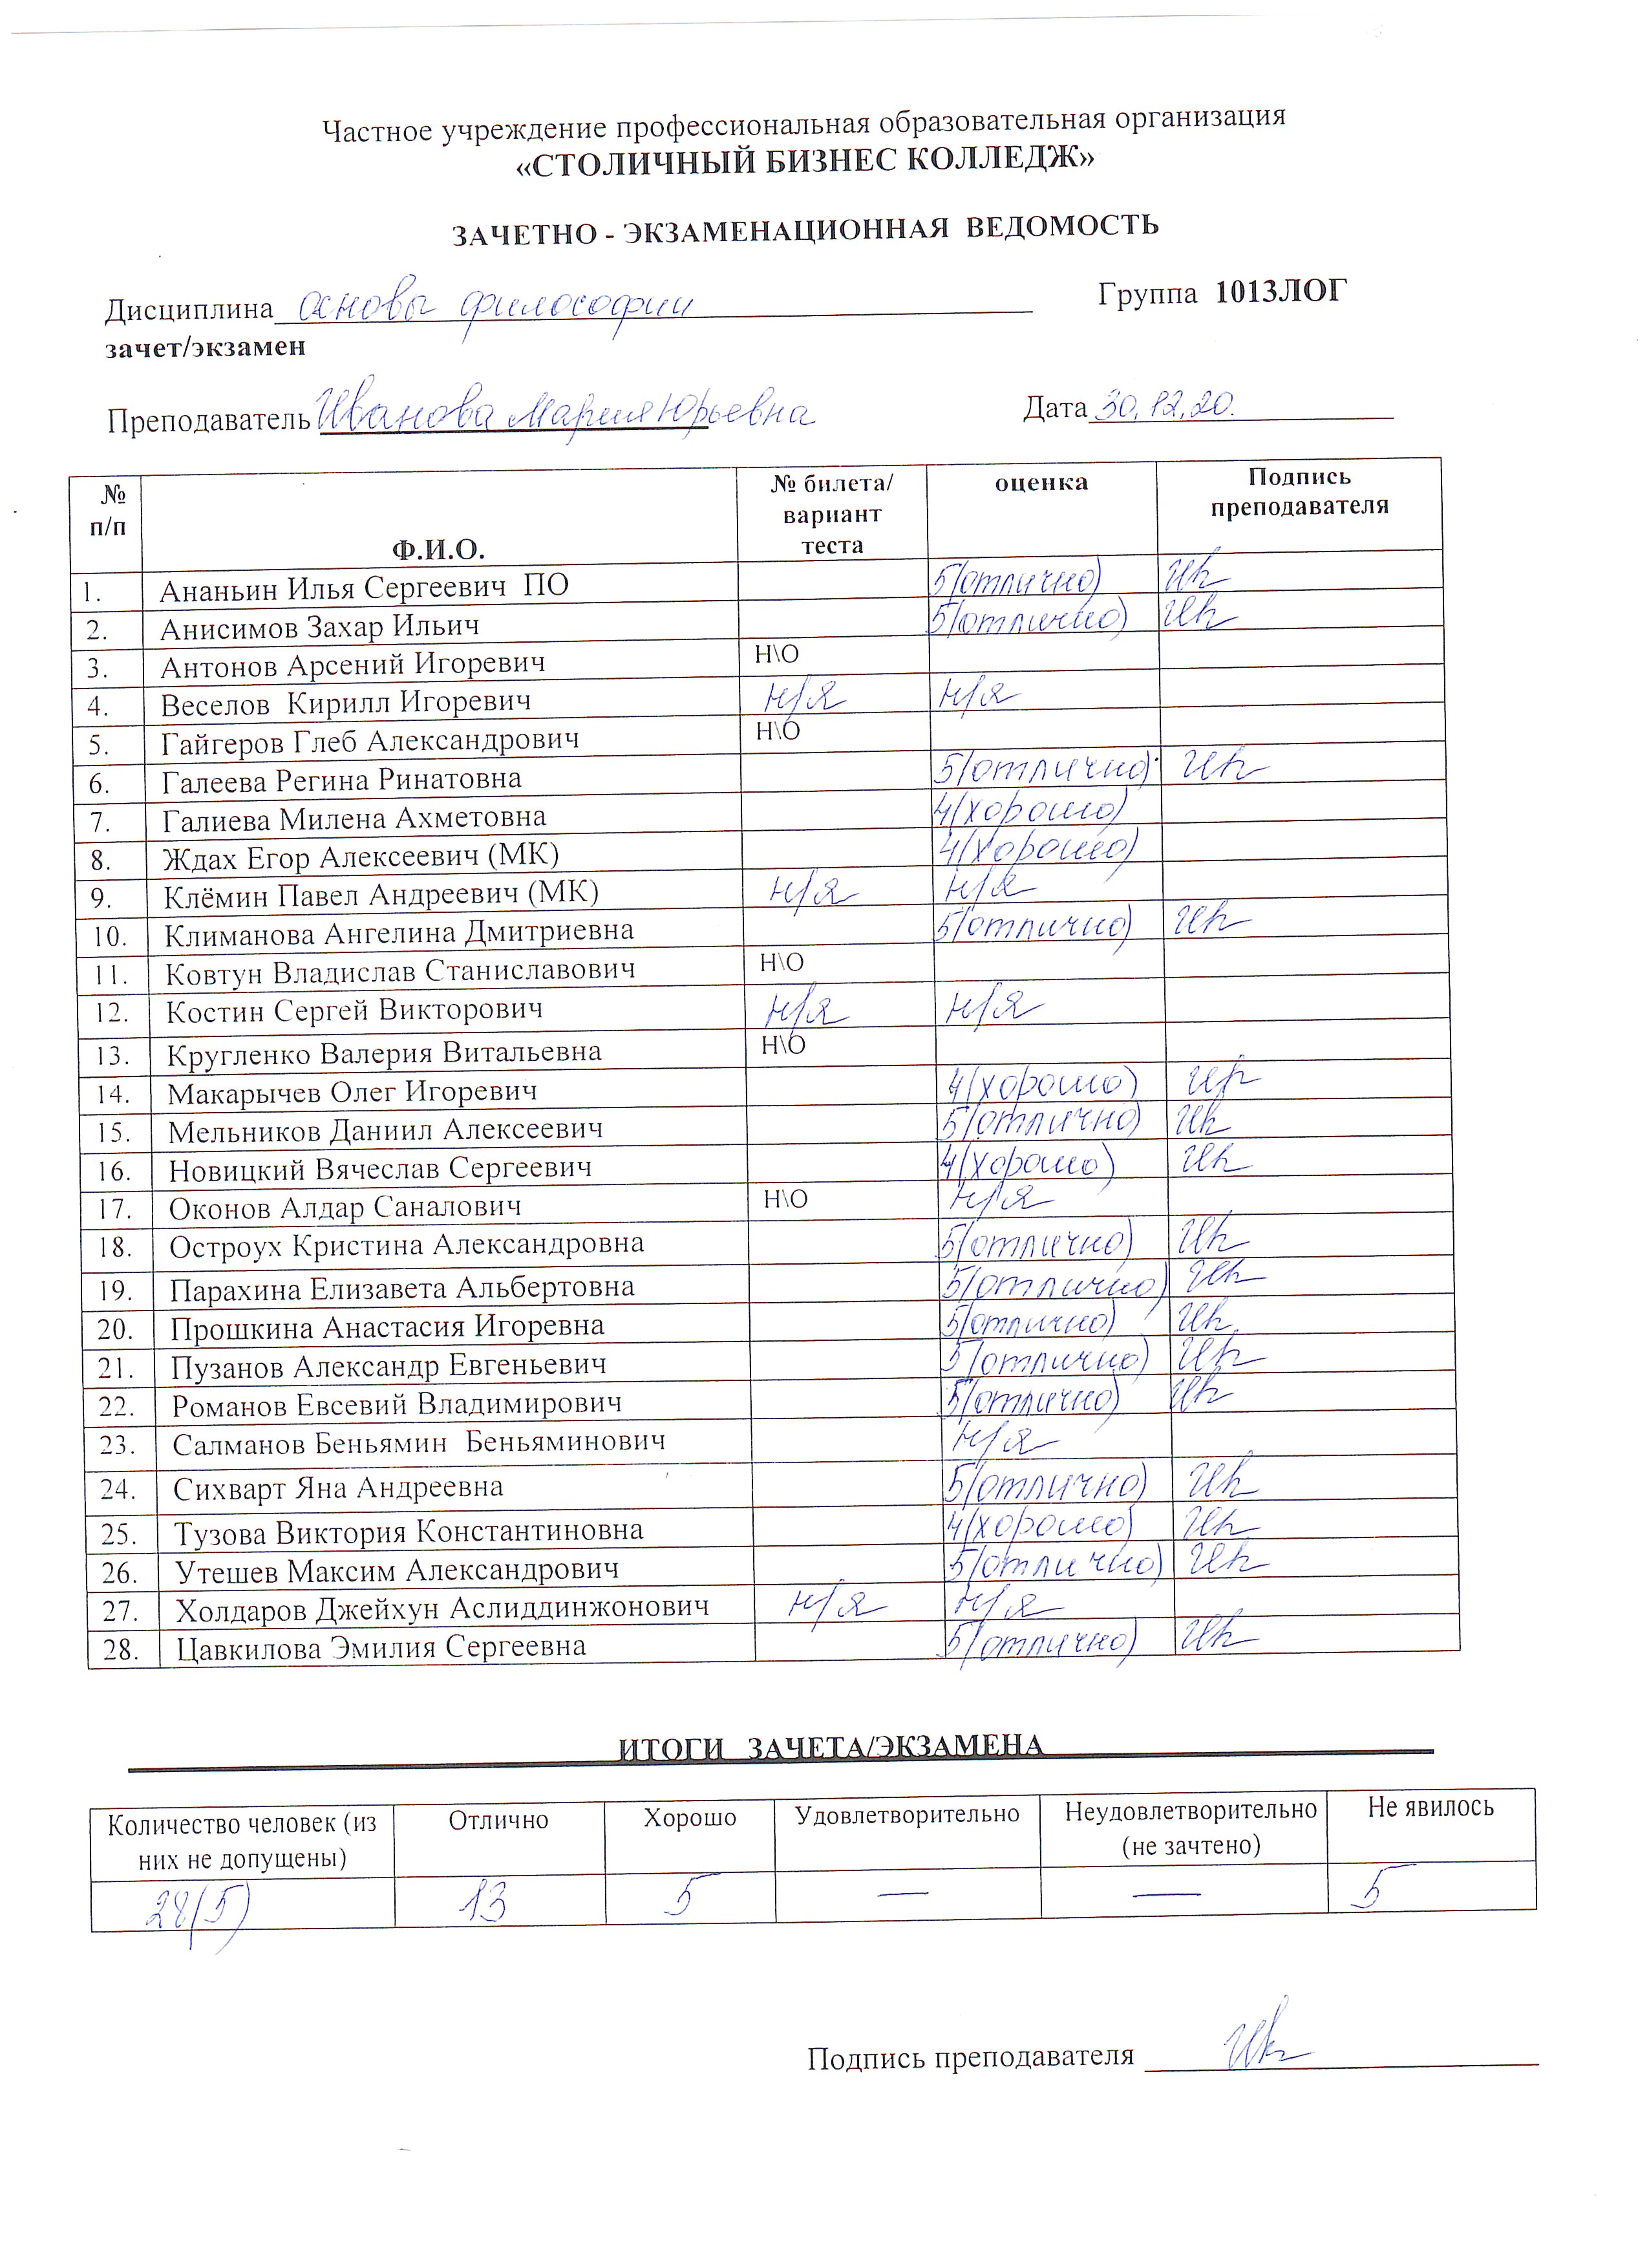 Частное учреждение профессиональная образовательная организация
«СТОЛИЧНЫЙ БИЗНЕС КОЛЛЕДЖ»
ЗАЧЕТНО - ЭКЗАМЕНАЦИОННАЯ ВЕДОМОСТЬ
Дисциплина основы философии Группа 1013ЛОГ
зачет/экзамен
Преподаватель Иванова Мария Юрьевна Дата 30.12.20.
№ п/п Ф.И.О. № билета/ вариант теста оценка Подпись преподавателя
1. Ананьин Илья Сергеевич ПО 5(отлично)
2. Анисимов Захар Ильич 5(отлично)
3. Антонов Арсений Игоревич Н\О
4. Веселов Кирилл Игоревич н/я н/я
5. Гайгеров Глеб Александрович Н\О
6. Галеева Регина Ринатовна 5(отлично)
7. Галиева Милена Ахметовна 4(хорошо)
8. Ждах Егор Алексеевич (МК) 4(хорошо)
9. Клёмин Павел Андреевич (МК) н/я н/я
10. Климанова Ангелина Дмитриевна 5(отлично)
11. Ковтун Владислав Станиславович Н\О
12. Костин Сергей Викторович н/я н/я
13. Кругленко Валерия Витальевна Н\О
14. Макарычев Олег Игоревич 4(хорошо)
15. Мельников Даниил Алексеевич 5(отлично)
16. Новицкий Вячеслав Сергеевич 4(хорошо)
17. Оконов Алдар Саналович Н\О н/я
18. Остроух Кристина Александровна 5(отлично)
19. Парахина Елизавета Альбертовна 5(отлично)
20. Прошкина Анастасия Игоревна 5(отлично)
21. Пузанов Александр Евгеньевич 5(отлично)
22. Романов Евсевий Владимирович 5(отлично)
23. Салманов Беньямин Беньяминович н/я
24. Сихварт Яна Андреевна 5(отлично)
25. Тузова Виктория Константиновна 4(хорошо)
26. Утешев Максим Александрович 5(отлично)
27. Холдаров Джейхун Аслиддинжонович н/я н/я
28. Цавкилова Эмилия Сергеевна 5(отлично)
ИТОГИ ЗАЧЕТА/ЭКЗАМЕНА
Количество человек (из них не допущены) Отлично Хорошо Удовлетворительно Неудовлетворительно (не зачтено) Не явилось
28(5) 13 5 — — 5
Подпись преподавателя